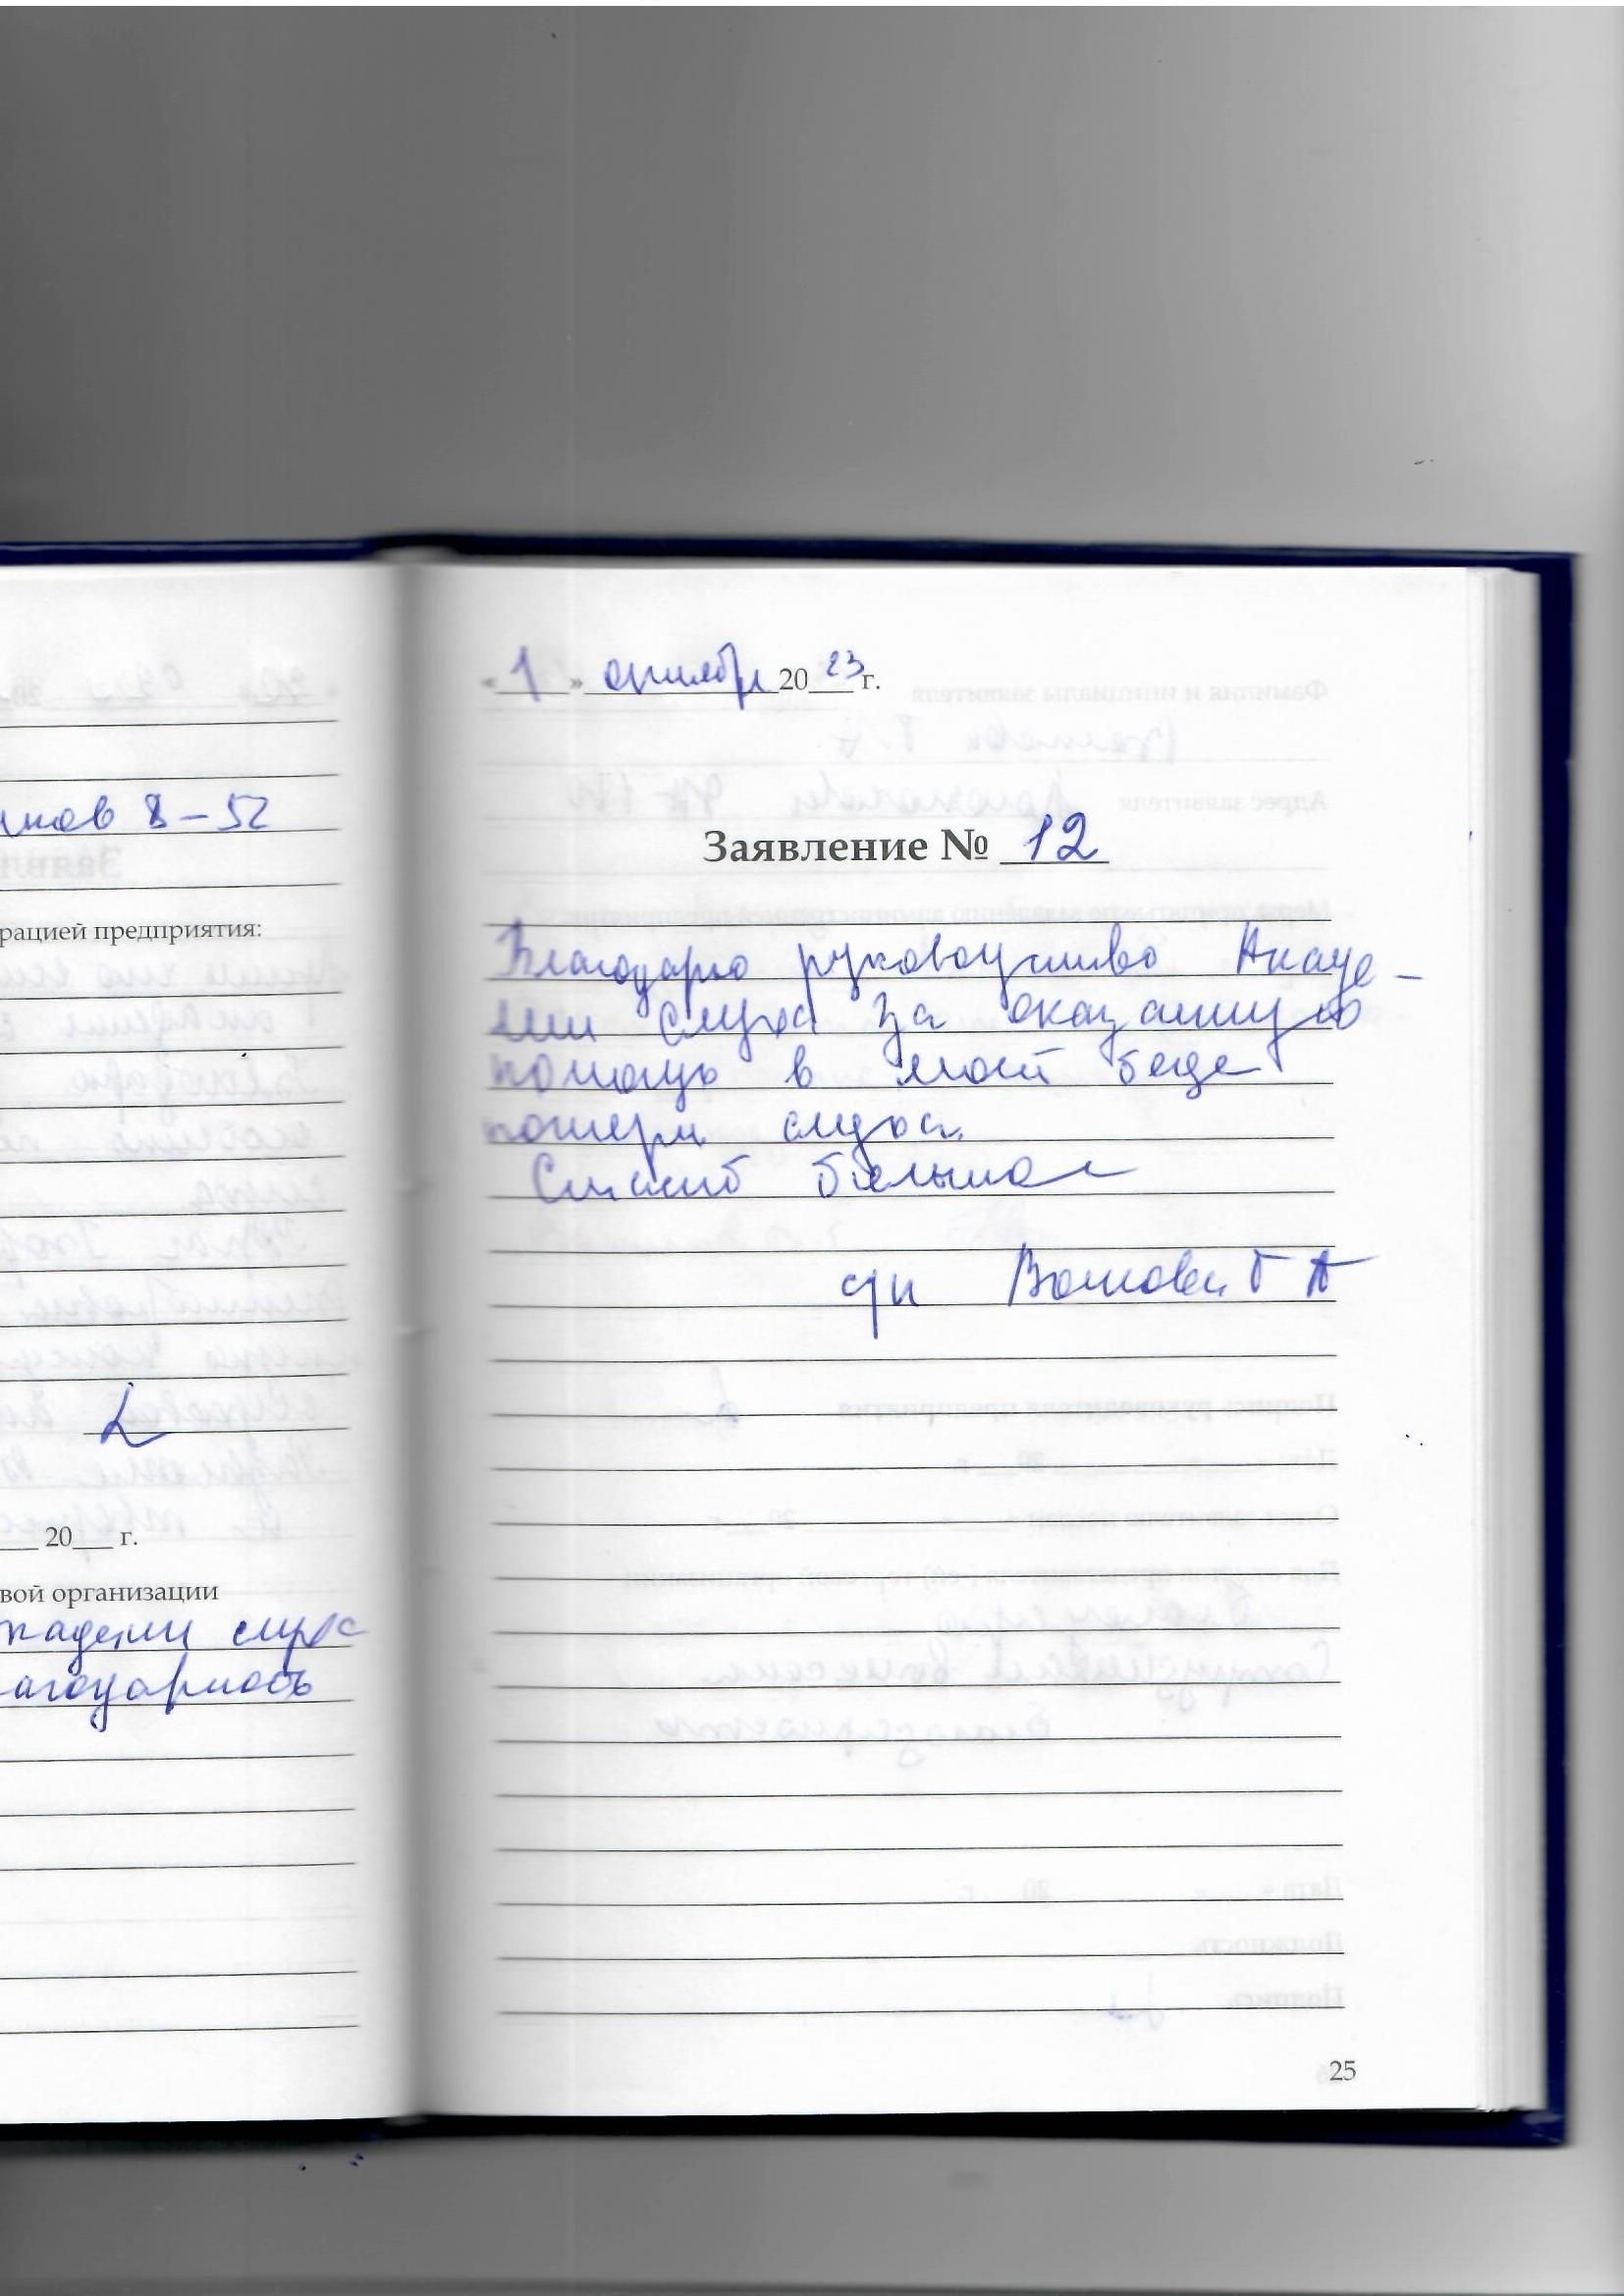 нков 8-52
рацией предприятия:
20 г.
вой организации
кадемии слуха
агодарность
« 1 » октября 20 23 г.
Заявление № 12
Благодарю руководство Акаде-
мии слуха за оказанную
помощь в моей беде
потери слуха.
Спасибо большое
25